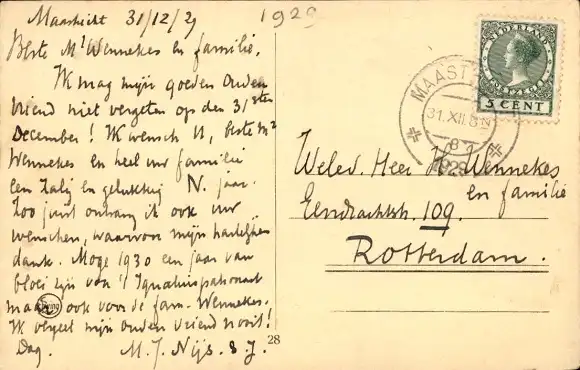 Maastricht 31/12/29
1929
Beste Mr Wennekes en familie.
Ik mag mijn goeden ouden
vriend niet vergeten op den 31sten
December! Ik wensch U, beste Mr
Wennekes en heel uw familie
een Zalig en gelukkig N. jaar.
Zoo juist ontvang ik ook uw
wenschen, waarvoor mijn hartelijken
dank. Moge 1930 een jaar van
bloei zijn van 't Ignatiuspatronaat
maar ook voor de fam. Wennekes.
Ik vergeet mijn ouden vriend nooit!
Dag. M. J. Nijs. S. J.
28
NEDERLAND
POSTZEGEL
5 CENT
MAAST
31.XII.8-N
1929
Weled. Heer H. Wennekes
en familie
Eendrachtsh. 109.
Rotterdam.